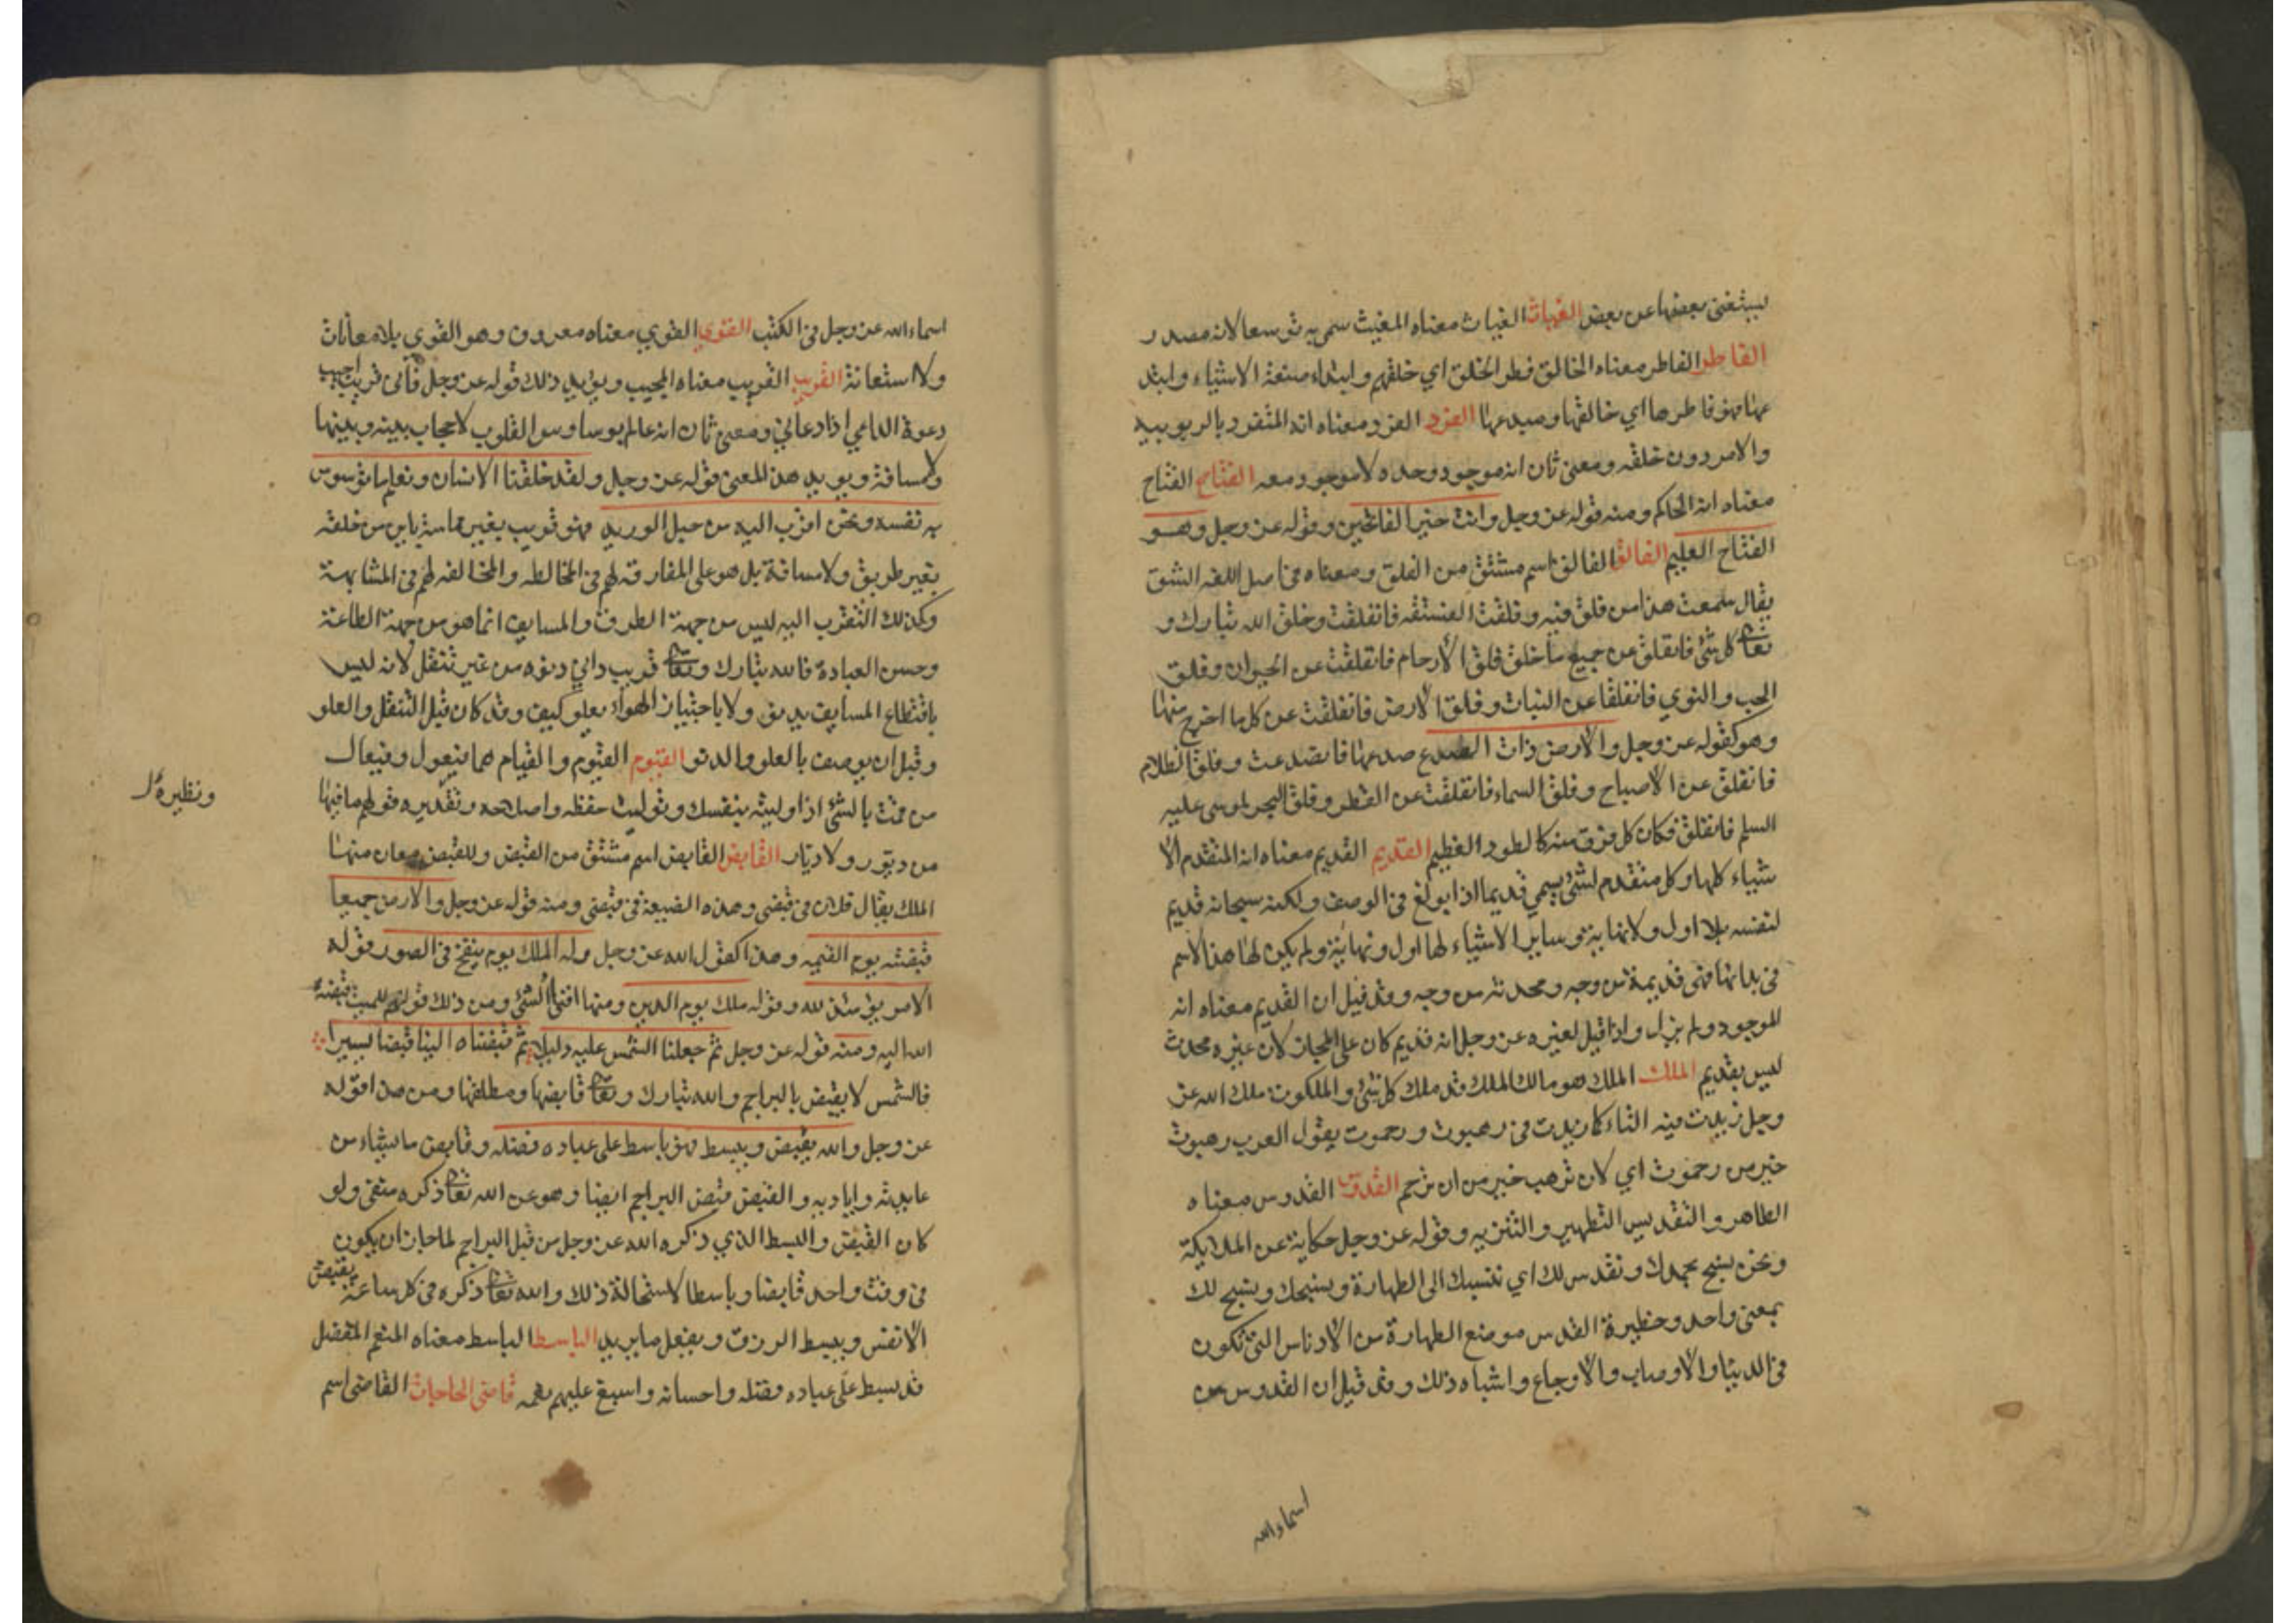 يستغنى بعضها عن بعض الغياث الغياث معناه المغيث سمى به توسعا لانه مصدر
الفاطر الفاطر معناه الخالق فطر الخلق اي خلقهم وابتداء صنعة الاشياء وابتد
عها فهو فاطرها اي خالقها ومبدعها الفرد الفرد معناه انه المتفرد بالربوبية
والامر دون خلقه ومعنى ثان انه موجود وحده لا موجود معه الفتاح الفتاح
معناه انه الحاكم ومنه قوله عز وجل وانت خير الفاتحين وقوله عز وجل وهو
الفتاح العليم الفالق الفالق اسم مشتق من الفلق ومعناه في اصل اللغه الشق
يقال سمعت هذا من فلق فيه وفلقت الفستقه فانفلقت وخلق الله تبارك و
تعالى كل شئ فانفلق عن جميع ما خلق فلق الارحام فانفلقت عن الحيوان وفلق
الحب والنوي فانفلقا عن النبات وفلق الارض فانفلقت عن كل ما اخرج منها
وهو كقوله عز وجل والارض ذات الصدع صدعها فانصدعت وفلق الظلام
فانفلق عن الاصباح وفلق السماء فانفلقت عن القطر وفلق البحر لموسى عليه
السلم فانفلق فكان كل فرق منه كالطود العظيم القديم القديم معناه انه المتقدم الا
شياء كلها وكل متقدم لشئ يسمي قديما اذا بولغ في الوصف ولكنه سبحانه قديم
لنفسه بلا اول ولا نهاية وساير الاشياء لها اول ونهاية ولم يكن لها هذا الاسم
في بدائها فهى قديمة من وجه ومحدثه من وجه وقد قيل ان القديم معناه انه
الموجود ولم يزل واذا قيل لغيره عز وجل انه قديم كان على المجاز لان غيره محدث
ليس بقديم الملك الملك هو مالك الملك قد ملك كل شئ والملكوت ملك الله عز
وجل زيدت فيه التاء كما زيدت في رهبوت ورحموت يقول العرب رهبوت
خير من رحموت اي لان ترهب خير من ان ترحم القدوس القدوس معناه
الطاهر والتقديس التطهير والتنزيه وقوله عز وجل حكاية عن الملايكة
ونحن نسبح بحمدك ونقدس لك اي ننسبك الى الطهارة ونسبحك ونسبح لك
بمعنى واحد وحظيرة القدس موضع الطهارة من الادناس التي تكون
في الدنيا والاوصاب والاوجاع واشباه ذلك وقد قيل ان القدوس من
اسماء الله
اسماء الله عز وجل في الكتب القوي القوي معناه معروف وهو القوي بلا معانات
ولا استعانة القريب القريب معناه المجيب ويؤيد ذلك قوله عز وجل فأني قريب اجيب
دعوة الداعي اذا دعاني ومعنى ثان انه عالم بوساوس القلوب لا حجاب بينه وبينها
ولا مسافة ويويد هذا المعنى قوله عز وجل ولقد خلقنا الانسان ونعلم ما توسوس
به نفسه ونحن اقرب اليه من حبل الوريد فهو قريب بغير مماسة باين من خلقه
بغير طريق ولا مسافة بل هو على المفارقه لهم في المخالطه والمخالفه لهم في المشابهة
وكذلك التقرب اليه ليس من جهة الطرق والمسايف انما هو من جهة الطاعة
وحسن العبادة فالله تبارك وتعالى قريب داني دنوه من غير تنقل لانه ليس
باقتطاع المسايف يدنو ولا باجتياز الهواء يعلو كيف وقد كان قبل التنقل والعلو
وقبل ان يوصف بالعلو والدنو القيوم القيوم والقيام هما فيعول وفيعال
من قمت بالشئ اذا وليته بنفسك وتوليت حفظه واصلاحه وتقديره قولهم ما فيها
ونظيره
من ديور ولا ديار القابض القابض اسم مشتق من القبض وللقبض معان منها
الملك يقال فلان في قبضي وهذه الضيعة في قبضي ومنه قوله عز وجل والارض جميعا
قبضته يوم القيمه وهذا كقول الله عز وجل وله الملك يوم ينفخ في الصور وقوله
الامر يومئذ لله وقوله ملك يوم الدين ومنها افناء الشئ ومن ذلك قولهم للميت قبضه
الله اليه ومنه قوله عز وجل ثم جعلنا الشمس عليه دليلا ثم قبضناه الينا قبضا يسيرا
فالشمس لا يقبض بالبراجم والله تبارك وتعالى قابضها ومطلقها ومن هذا قوله
عز وجل والله يقبض ويبسط فهو باسط على عباده فضله وقابض ما يشاء من
عايدته واياديه والقبض قبض البراجم ايضا وهو عن الله تعالى ذكره منفى ولو
كان القبض والبسط الذي ذكره الله عز وجل من قبل البراجم لما جاز ان يكون
في وقت واحد قابضا وباسطا لاستحالة ذلك والله تعالى ذكره في كل ساعة يقبض
الانفس ويبسط الرزق ويفعل ما يريد الباسط الباسط معناه المنعم المفضل
قد بسط على عباده فضله واحسانه واسبغ عليهم نعمه قاضى الحاجات القاضى اسم